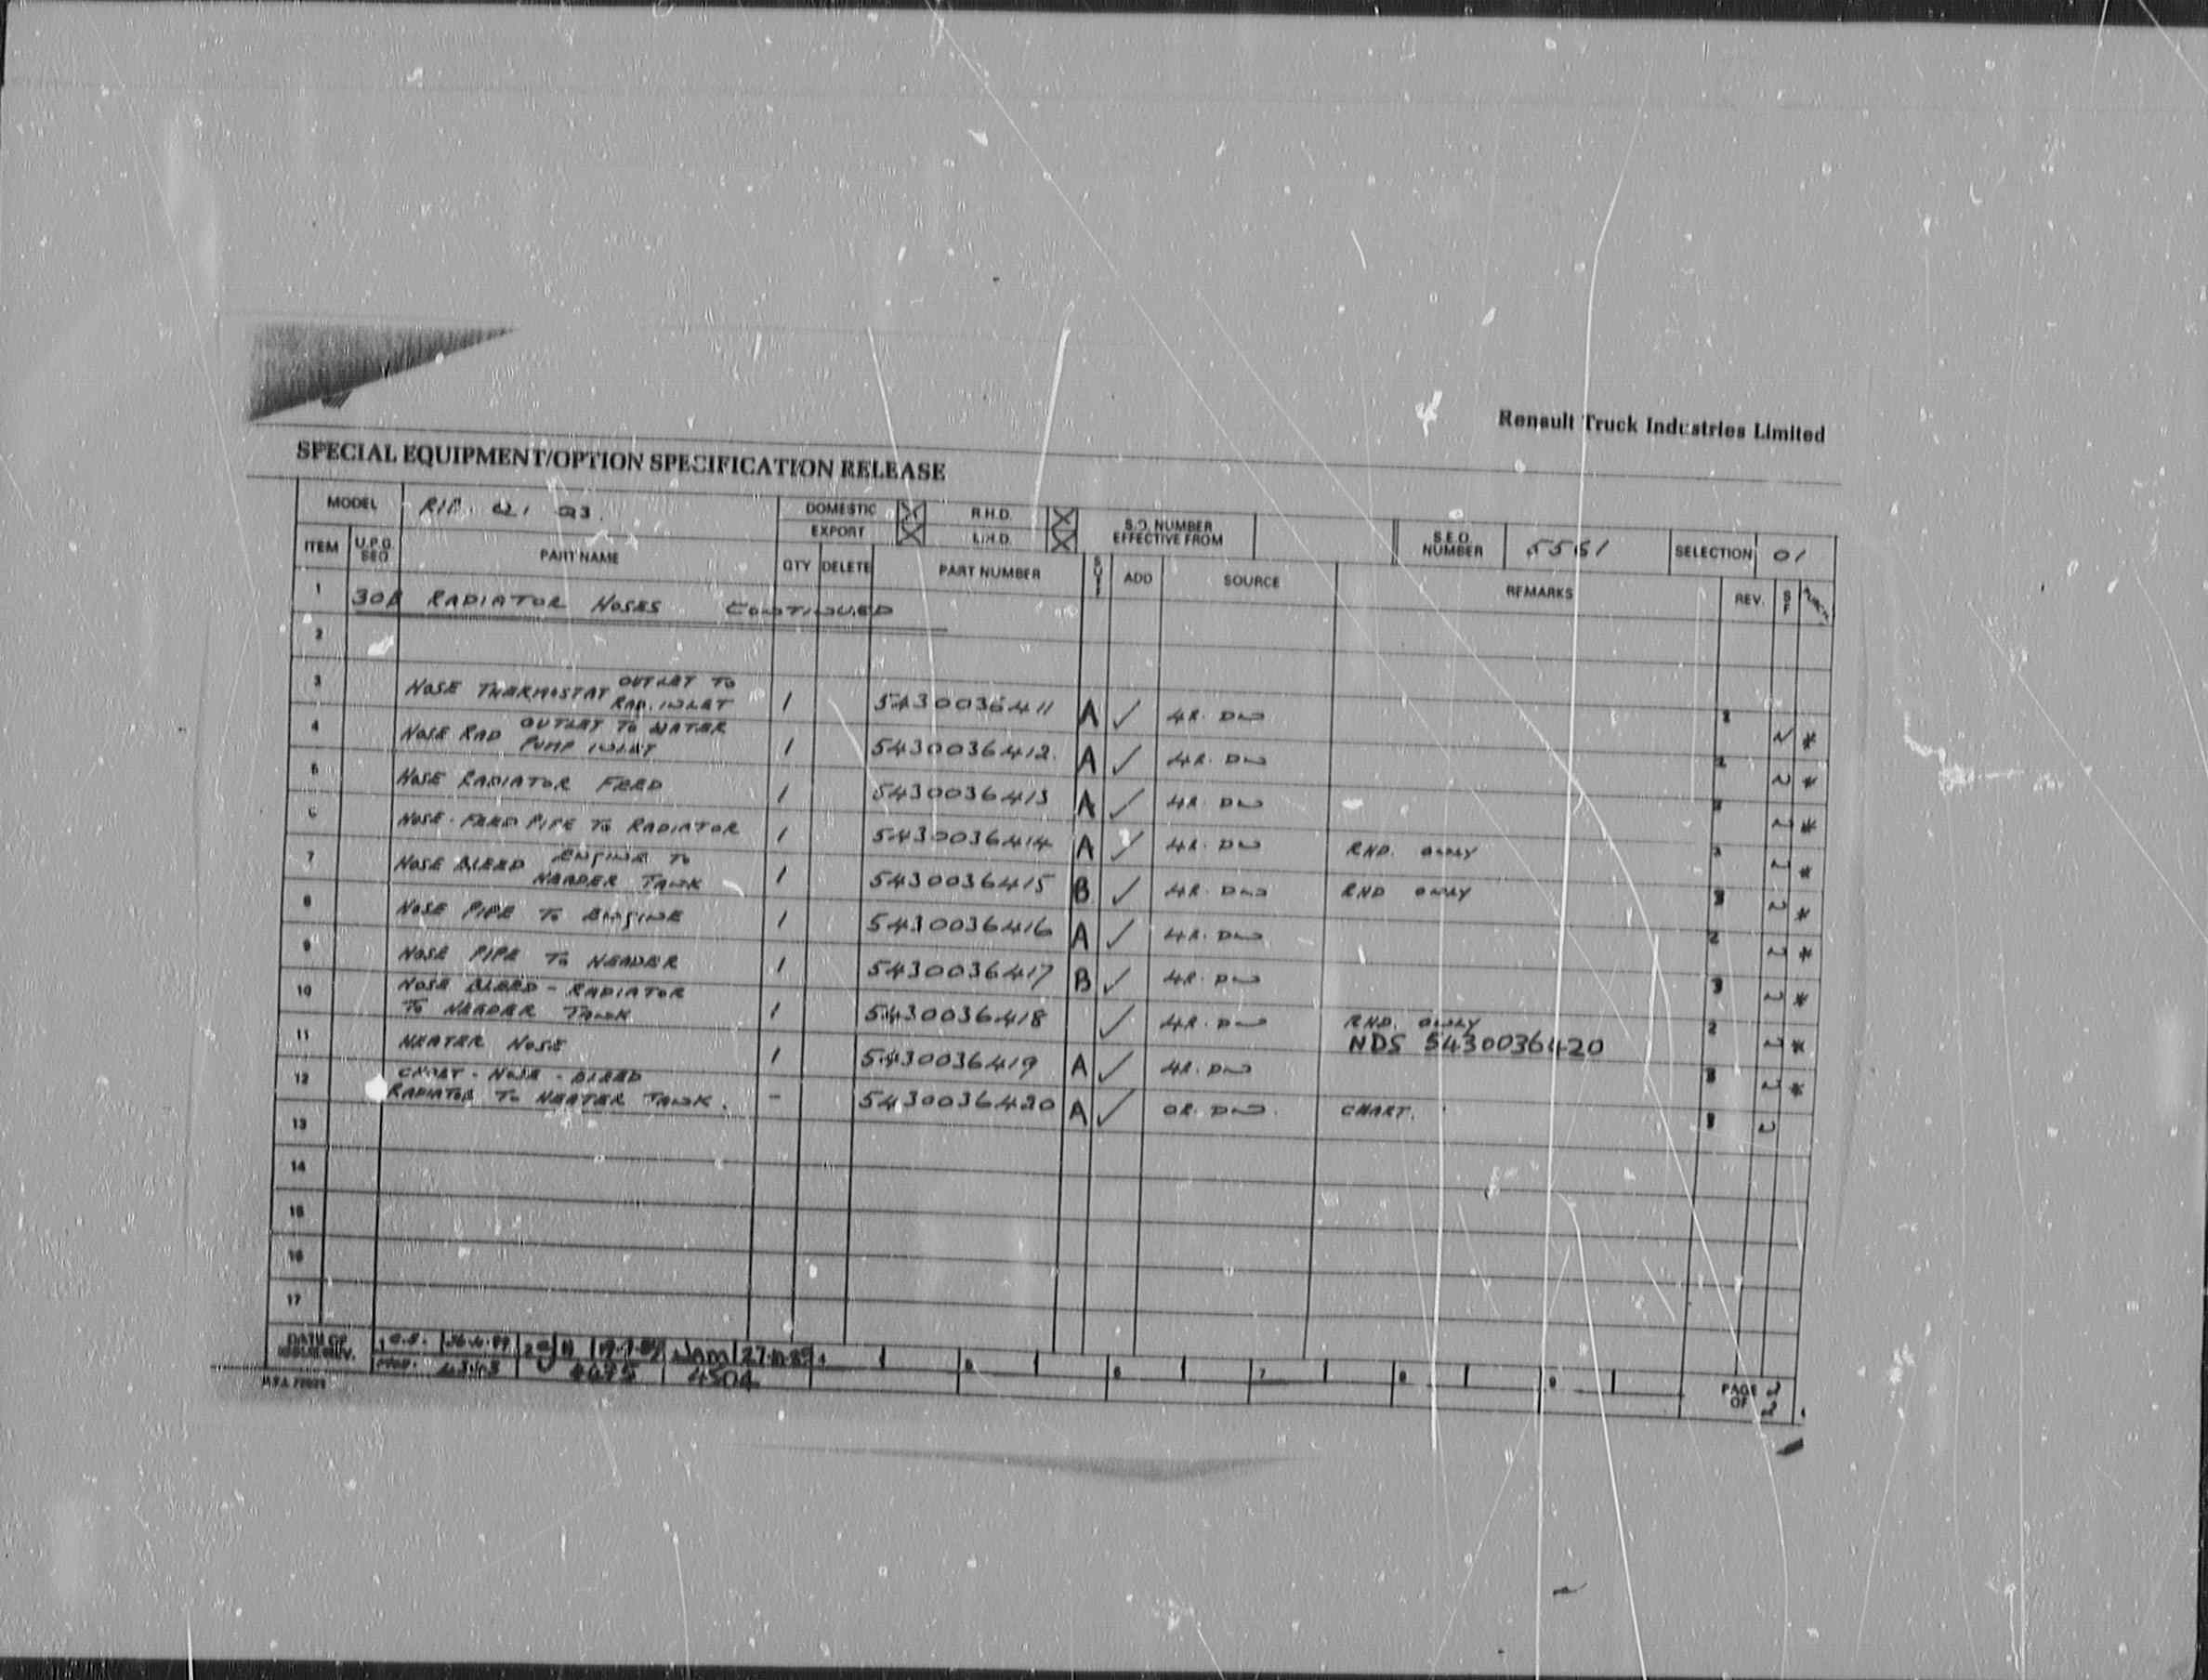 Renault Truck Industries Limited
SPECIAL EQUIPMENT/OPTION SPECIFICATION RELEASE
MODEL DOMESTIC R.H.D. S.O. NUMBER EFFECTIVE FROM S.E.O. NUMBER 5561 SELECTION 01
EXPORT L.H.D.
ITEM U.P.G. SEQ PART NAME QTY DELETE PART NUMBER ADD SOURCE REMARKS REV. S F
1 RADIATOR HOSES CONTINUED
2
3 HOSE THERMOSTAT OUTLET TO RAD. INLET 1 5430036411 A ✓ 4R. DW 1 *
4 HOSE RAD OUTLET TO WATER PUMP INLET 1 5430036412 A ✓ 4R. DW *
5 HOSE RADIATOR FEED 1 5430036413 A ✓ 4R. DW *
6 HOSE. FEED PIPE TO RADIATOR 1 5430036414 A ✓ 4R. DW RHD. ONLY *
7 HOSE BLEED ENGINE TO HEADER TANK 1 5430036415 B ✓ 4R. DW RHD ONLY 3 *
8 HOSE PIPE TO ENGINE 1 5430036416 A ✓ 4R. DW 2 *
9 HOSE PIPE TO HEADER 1 5430036417 B ✓ 4R. DW 3 *
10 HOSE BLEED - RADIATOR TO HEADER TANK 1 5430036418 ✓ 4R. DW RHD. ONLY NDS 5430036420 2 *
11 HEATER HOSE 1 5430036419 A ✓ 4R. DW 3 *
12 CHART - HOSE - BLEED RADIATOR TO HEATER TANK. - 5430036420 A ✓ OR. DW. CHART.
13
14
15
16
17
DATE OF ISSUE/REV. 1 2 5 6 7 8 9
4504
PAGE 2
OF 2